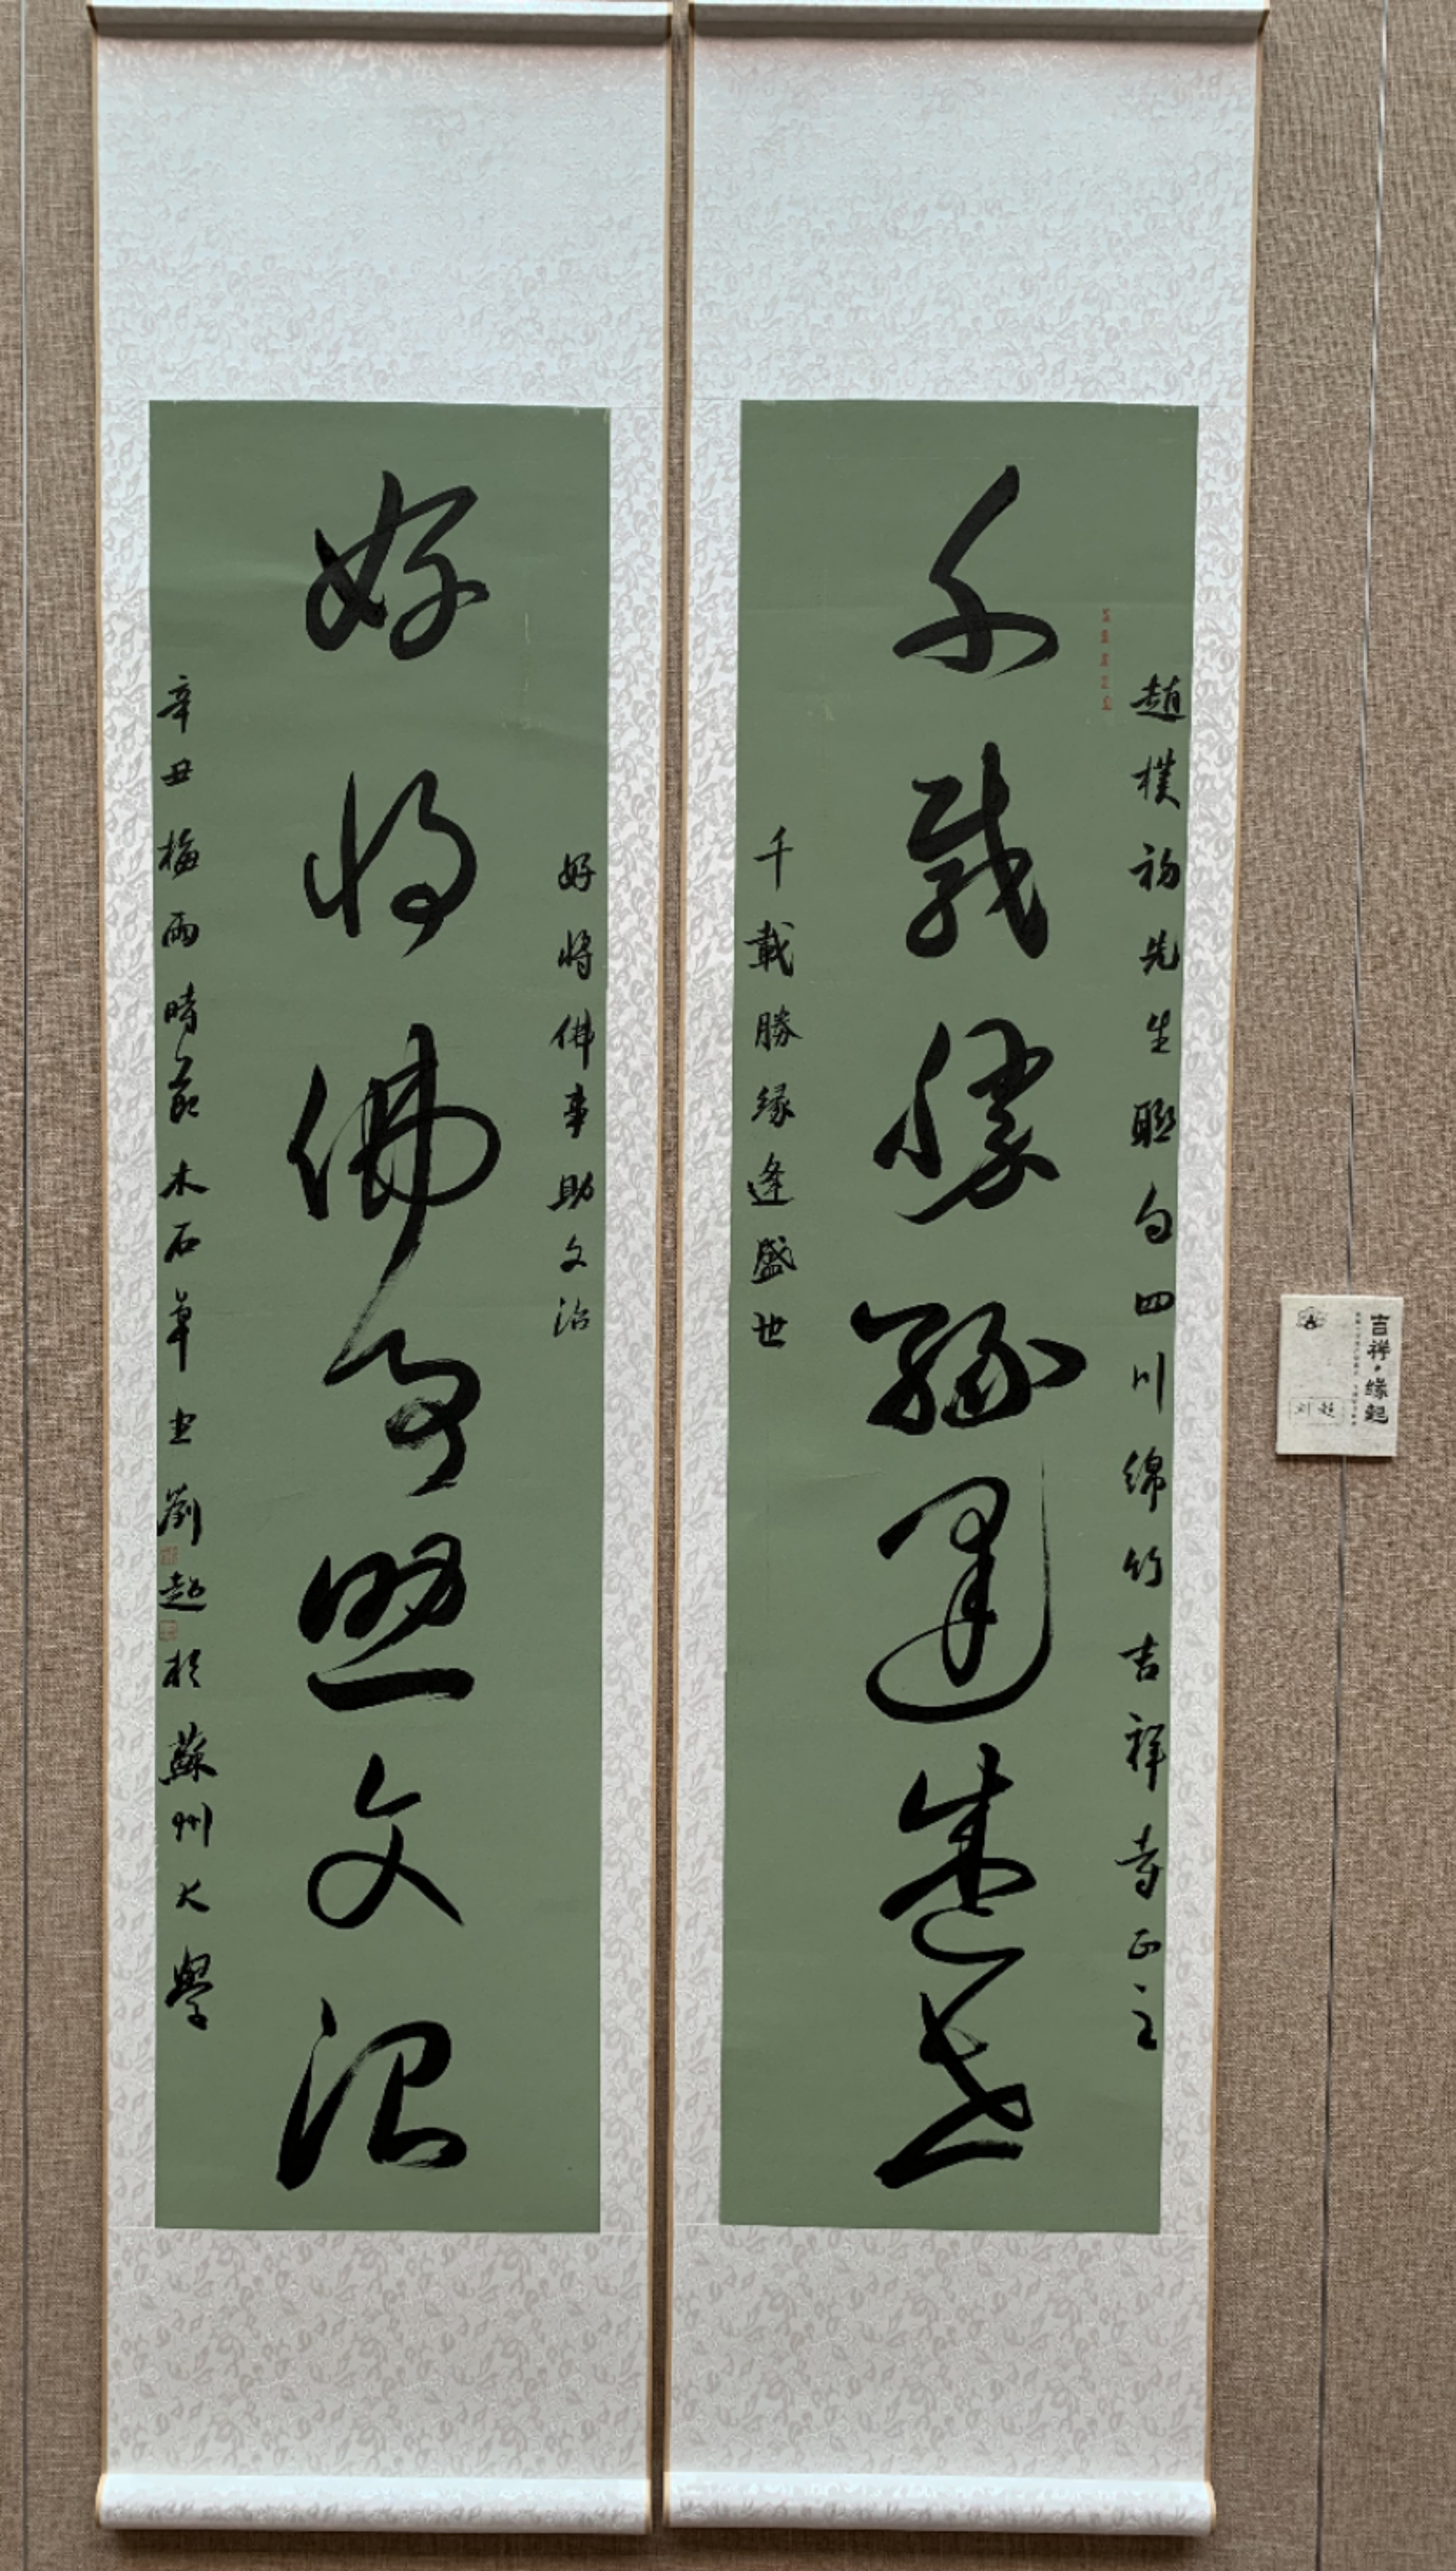 趙樸初先生聯句四川绵竹吉祥寺正之
千載勝緣逢盛世
千載勝緣逢盛世
好將佛事助文治
好將佛事助文治
辛丑梅雨時節木石草堂劉超於蘇州大學
吉祥·缘起
刘超